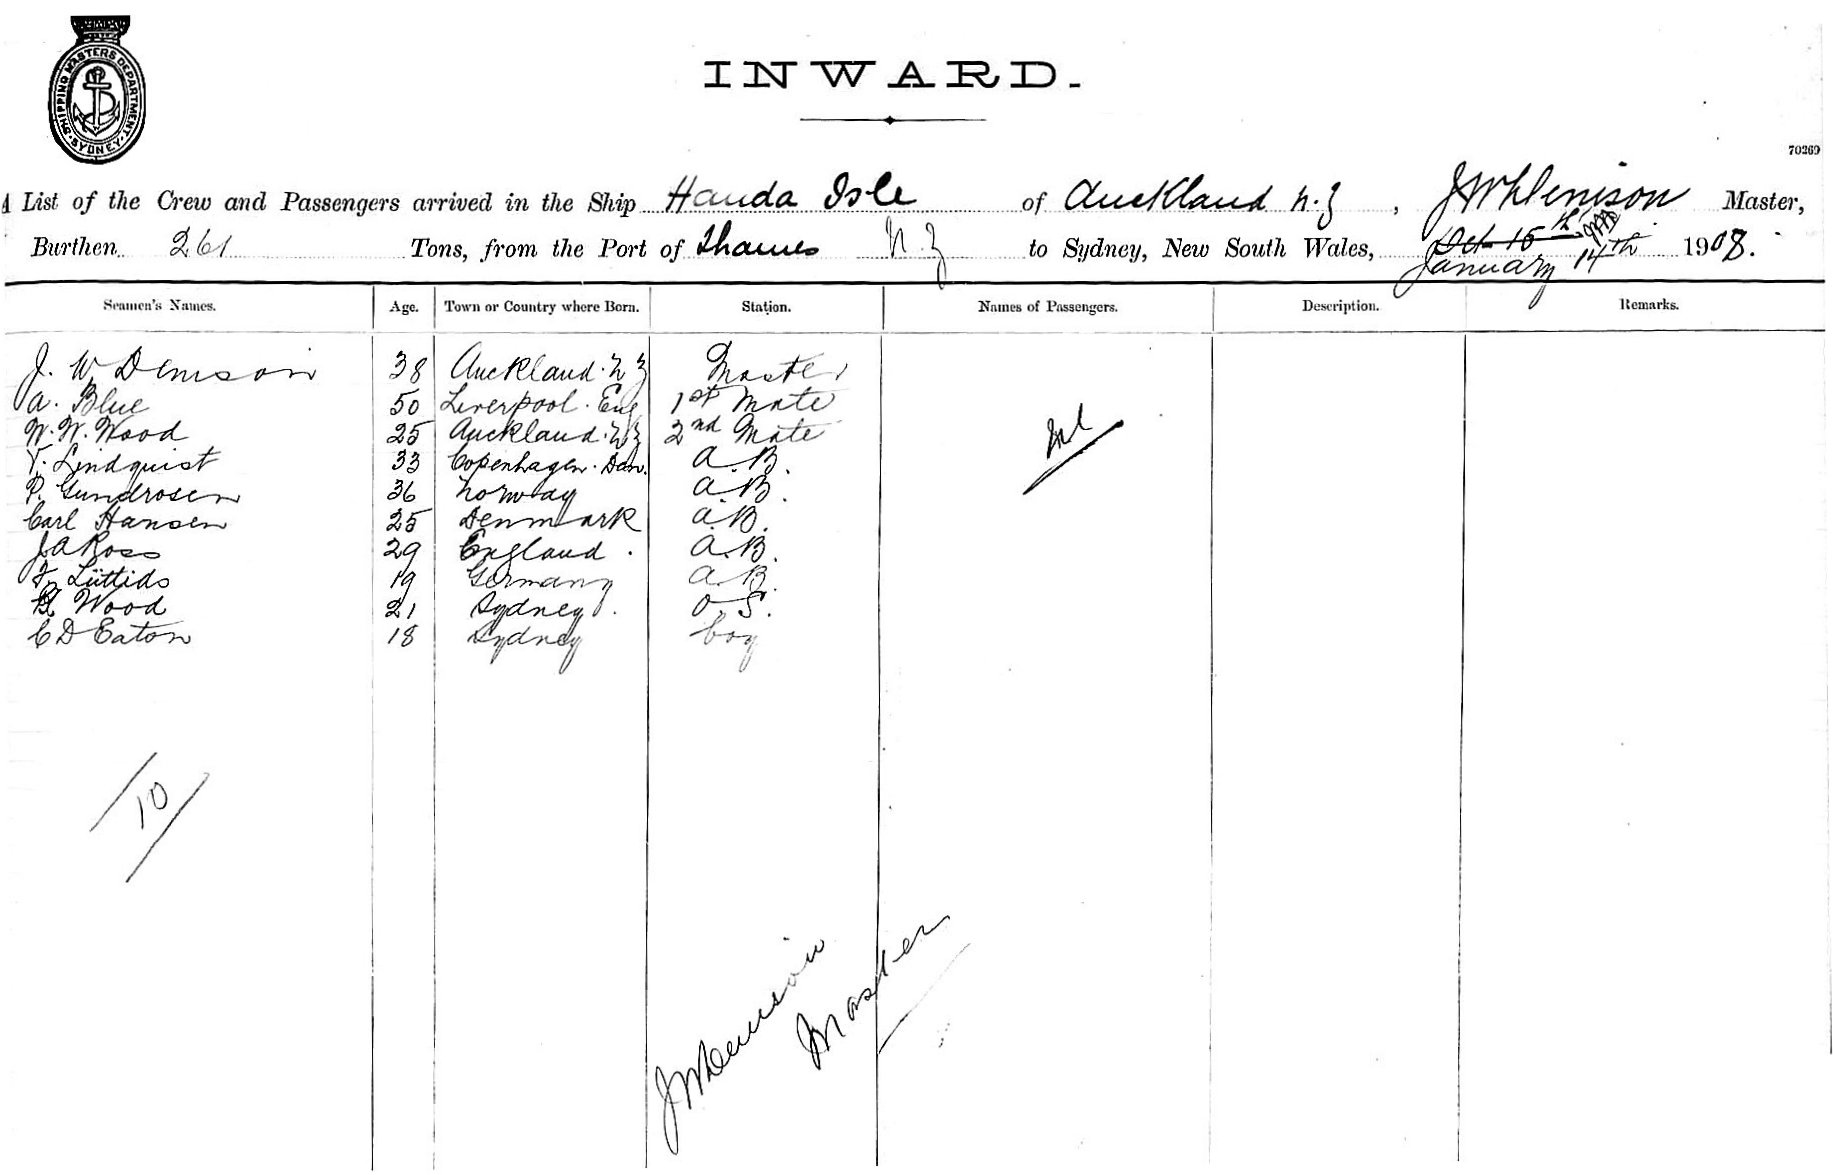 SHIPPING MASTERS DEPARTMENT. SYDNEY.
INWARD.
70269
A List of the Crew and Passengers arrived in the Ship Handa Isle of Auckland N.Z, J W Denison Master,
Burthen 261 Tons, from the Port of Thames N Z to Sydney, New South Wales, Oct 15th 1908.
January 14th
Seamen's Names. Age. Town or Country where Born. Station. Names of Passengers. Description. Remarks.
J. W Denison 38 Auckland. N Z Master
A. Blue 50 Liverpool. Eng 1st Mate
W. W. Wood 25 Auckland. N Z 2nd Mate
Nil
V. Lindquist 33 Copenhagen. Den. A. B.
P. Gundrosen 36 Norway A. B.
Carl Hansen 25 Denmark A. B.
J A Ross 29 England. A. B.
F. 19 Germany A. B.
Wood 21 Sydney. O. S.
C D Eaton 18 Sydney boy
10
J W Denison
Master